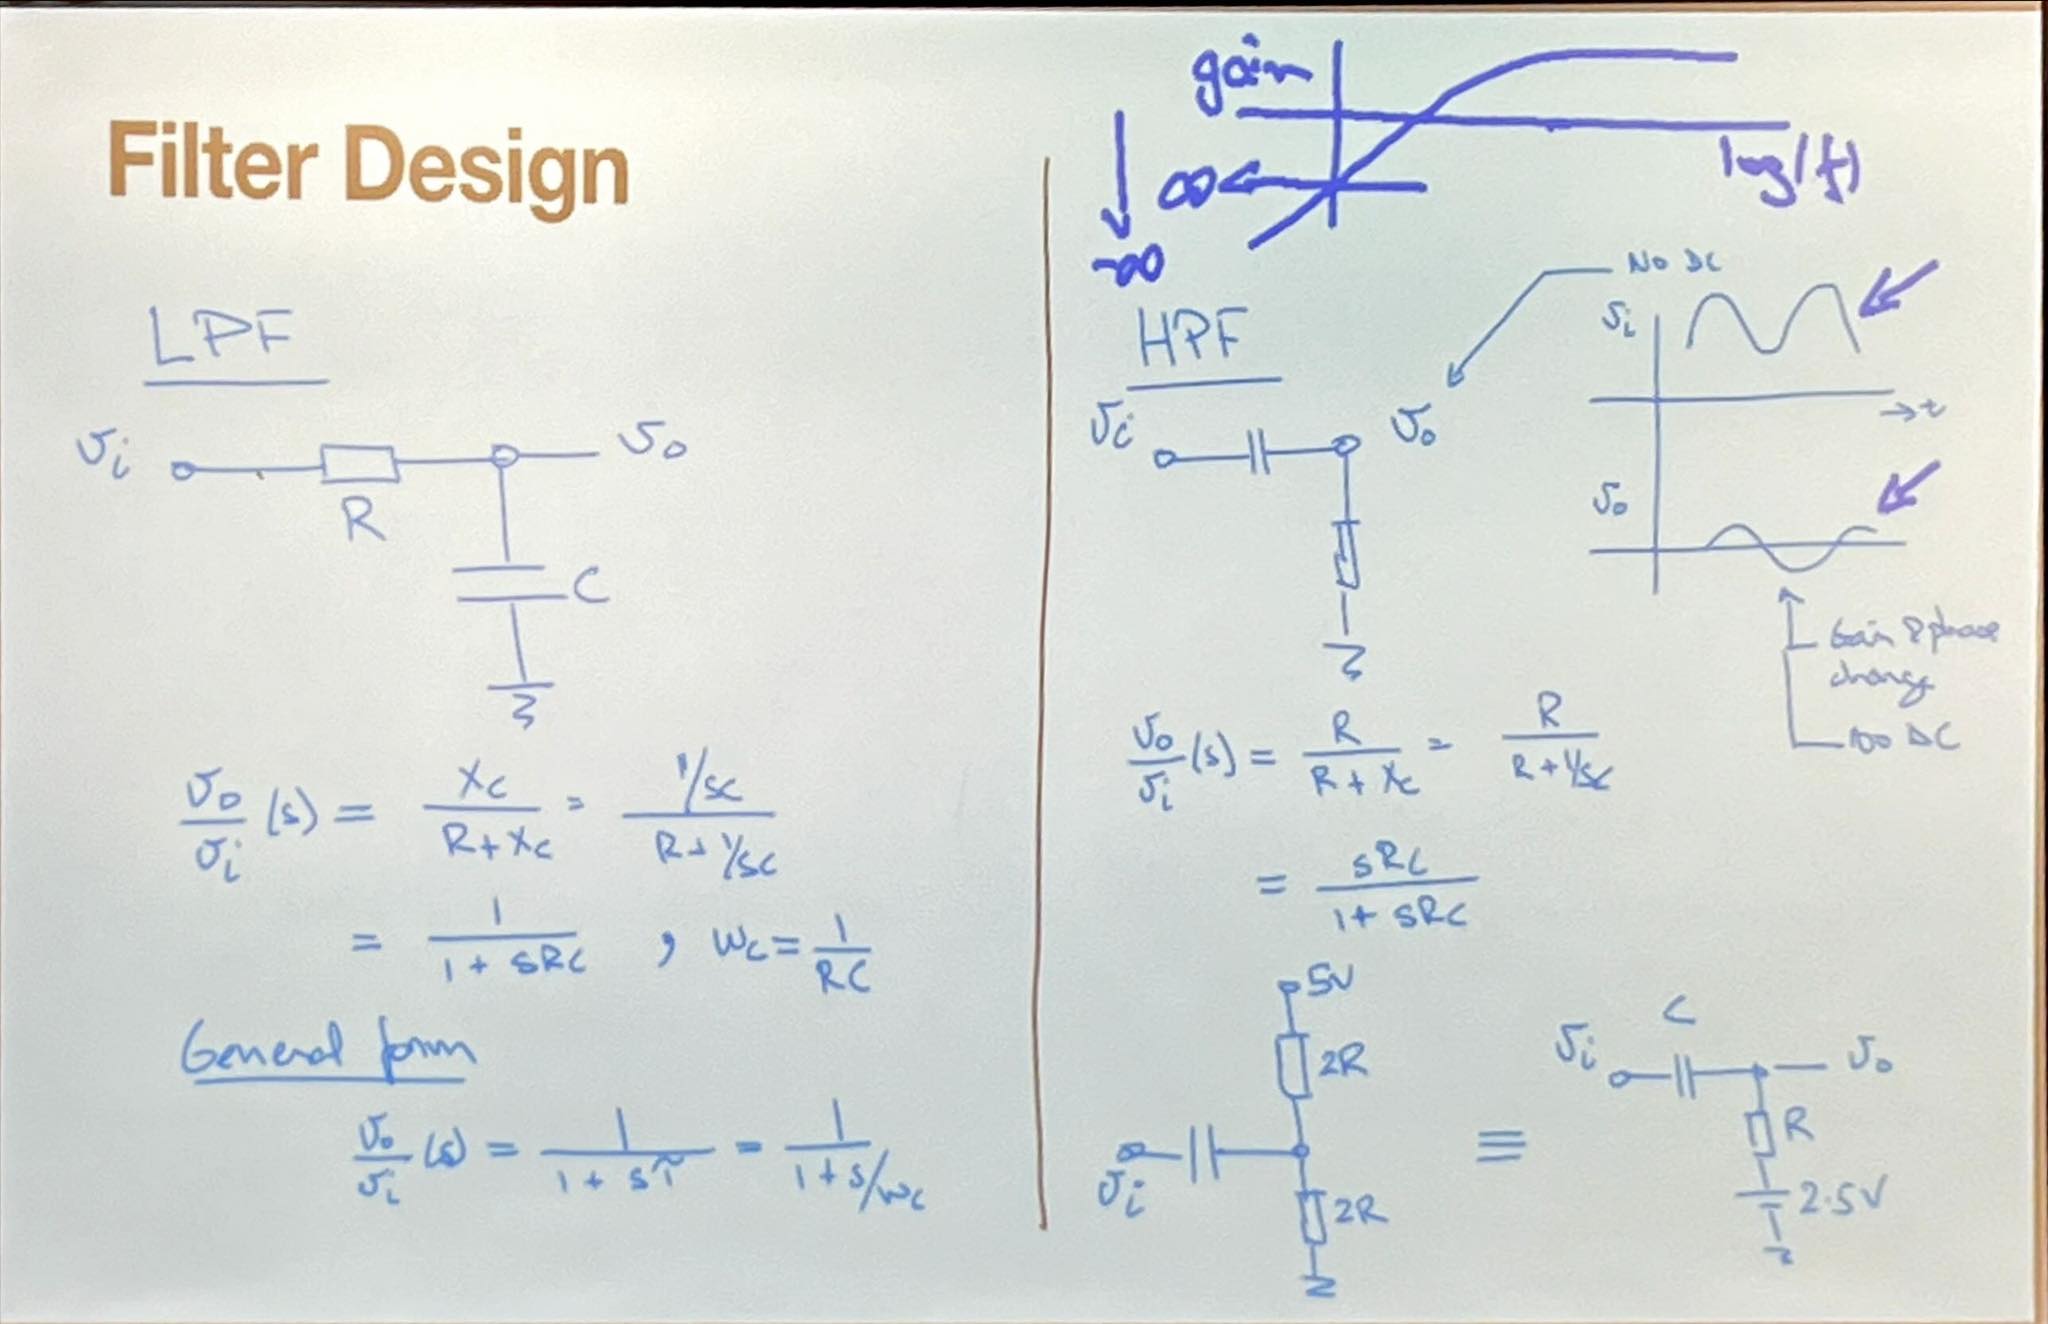 Filter Design
LPF
υi
R
υo
C
υo/υi (s) = Xc/(R+Xc) = (1/sC)/(R+1/sC)
= 1/(1+sRC) , ωc = 1/RC
General form
υo/υi (s) = 1/(1+sτ) = 1/(1+s/ωc)
gain
log(f)
∞
-∞
No DC
HPF
υi
υo
υi
→t
υo
Gain & phase
change
no DC
υo/υi (s) = R/(R+Xc) = R/(R+1/sC)
= sRC/(1+sRC)
5V
2R
υi
2R
≡
C
υi
υo
R
2.5V